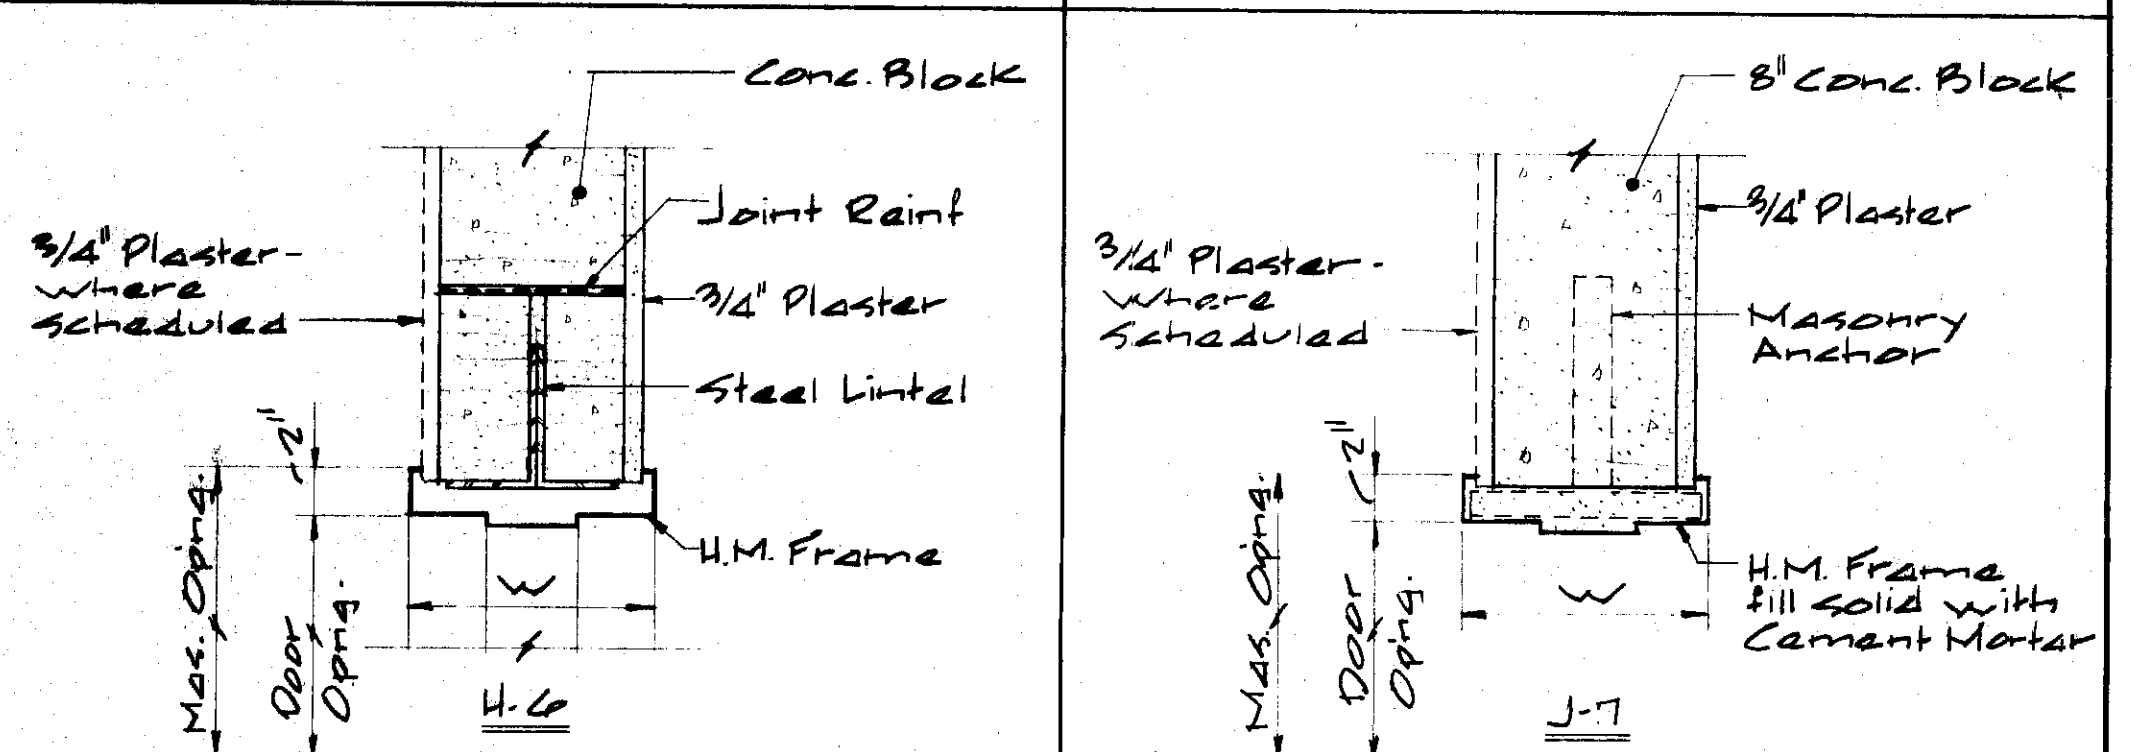 Conc. Block
Joint Reinf
3/4" Plaster
where
scheduled
3/4" Plaster
Steel Lintel
2"
H.M. Frame
W
Mas. Opng.
Door
Opng.
H-6
8" Conc. Block
3/4" Plaster
3/4" Plaster
where
scheduled
Masonry
Anchor
2"
H.M. Frame
fill solid with
Cement Mortar
W
Mas. Opng.
Door
Opng.
J-7